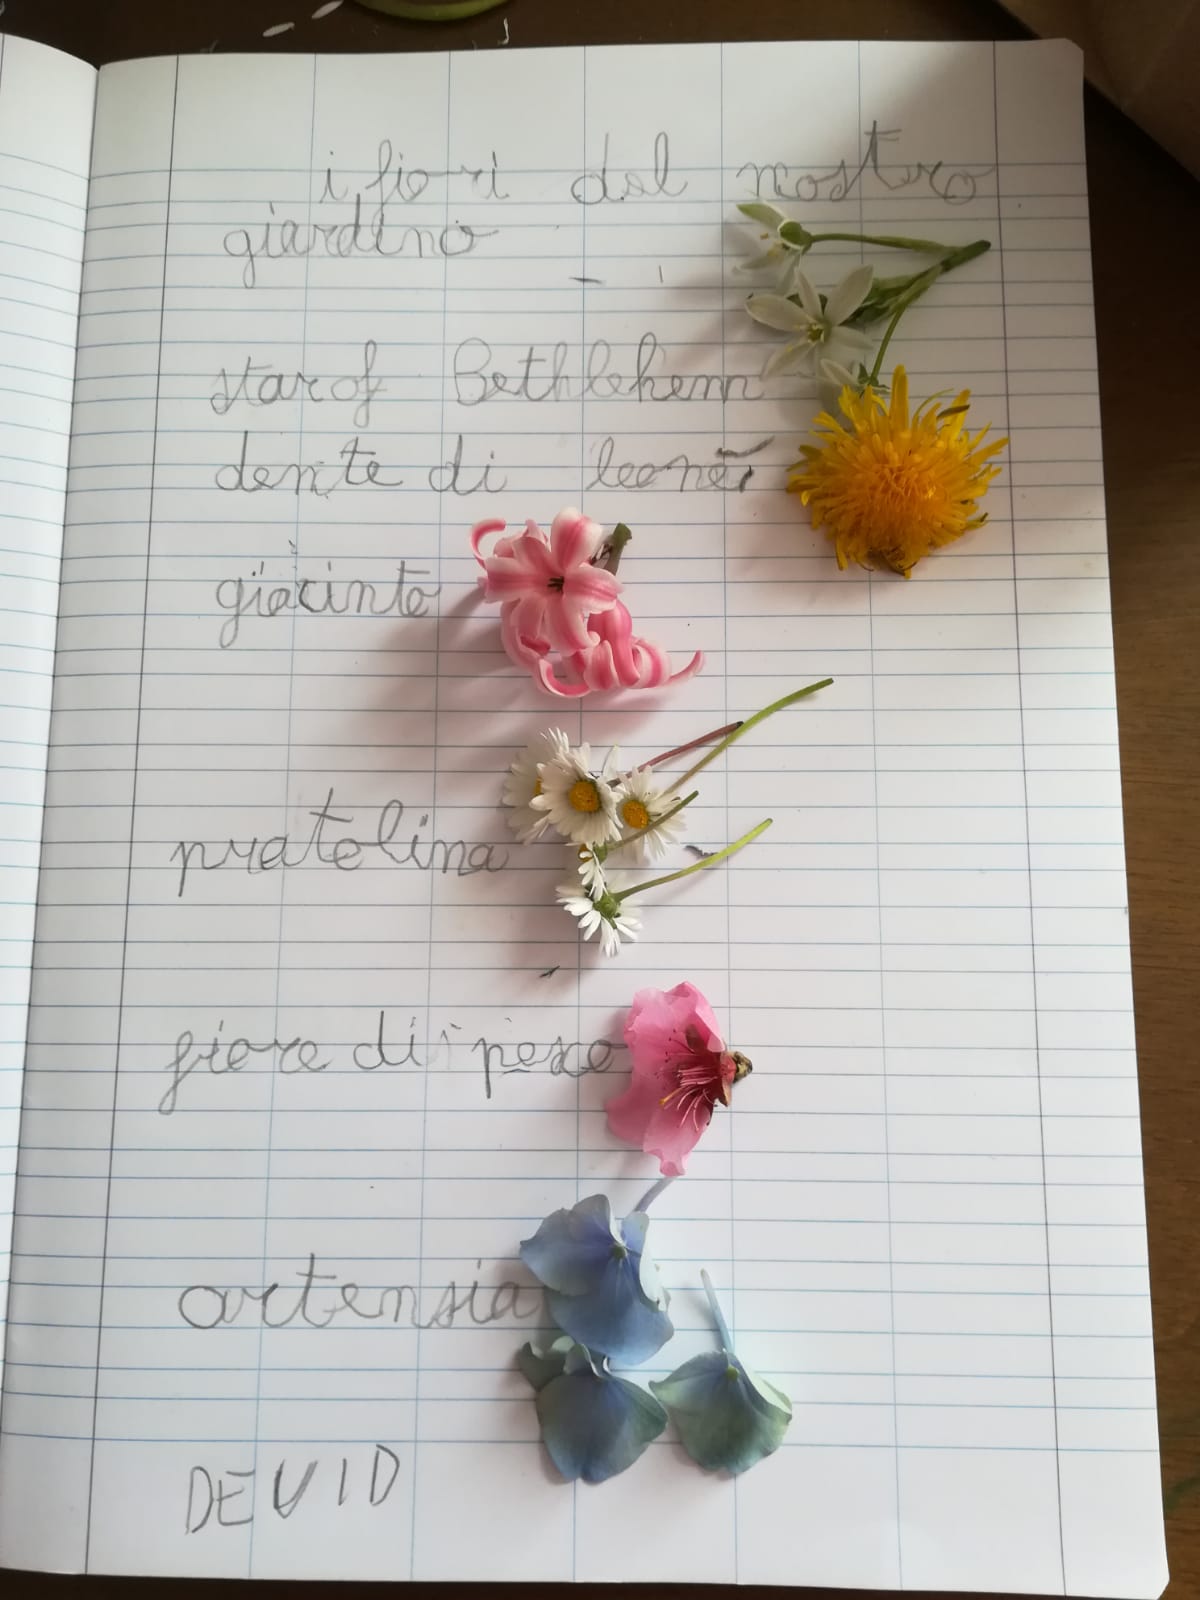 i fiori del nostro
giardino
star of Bethlehem
dente di leone
giacinto
pratolina
fiore di pesco
ortensia
DEVID